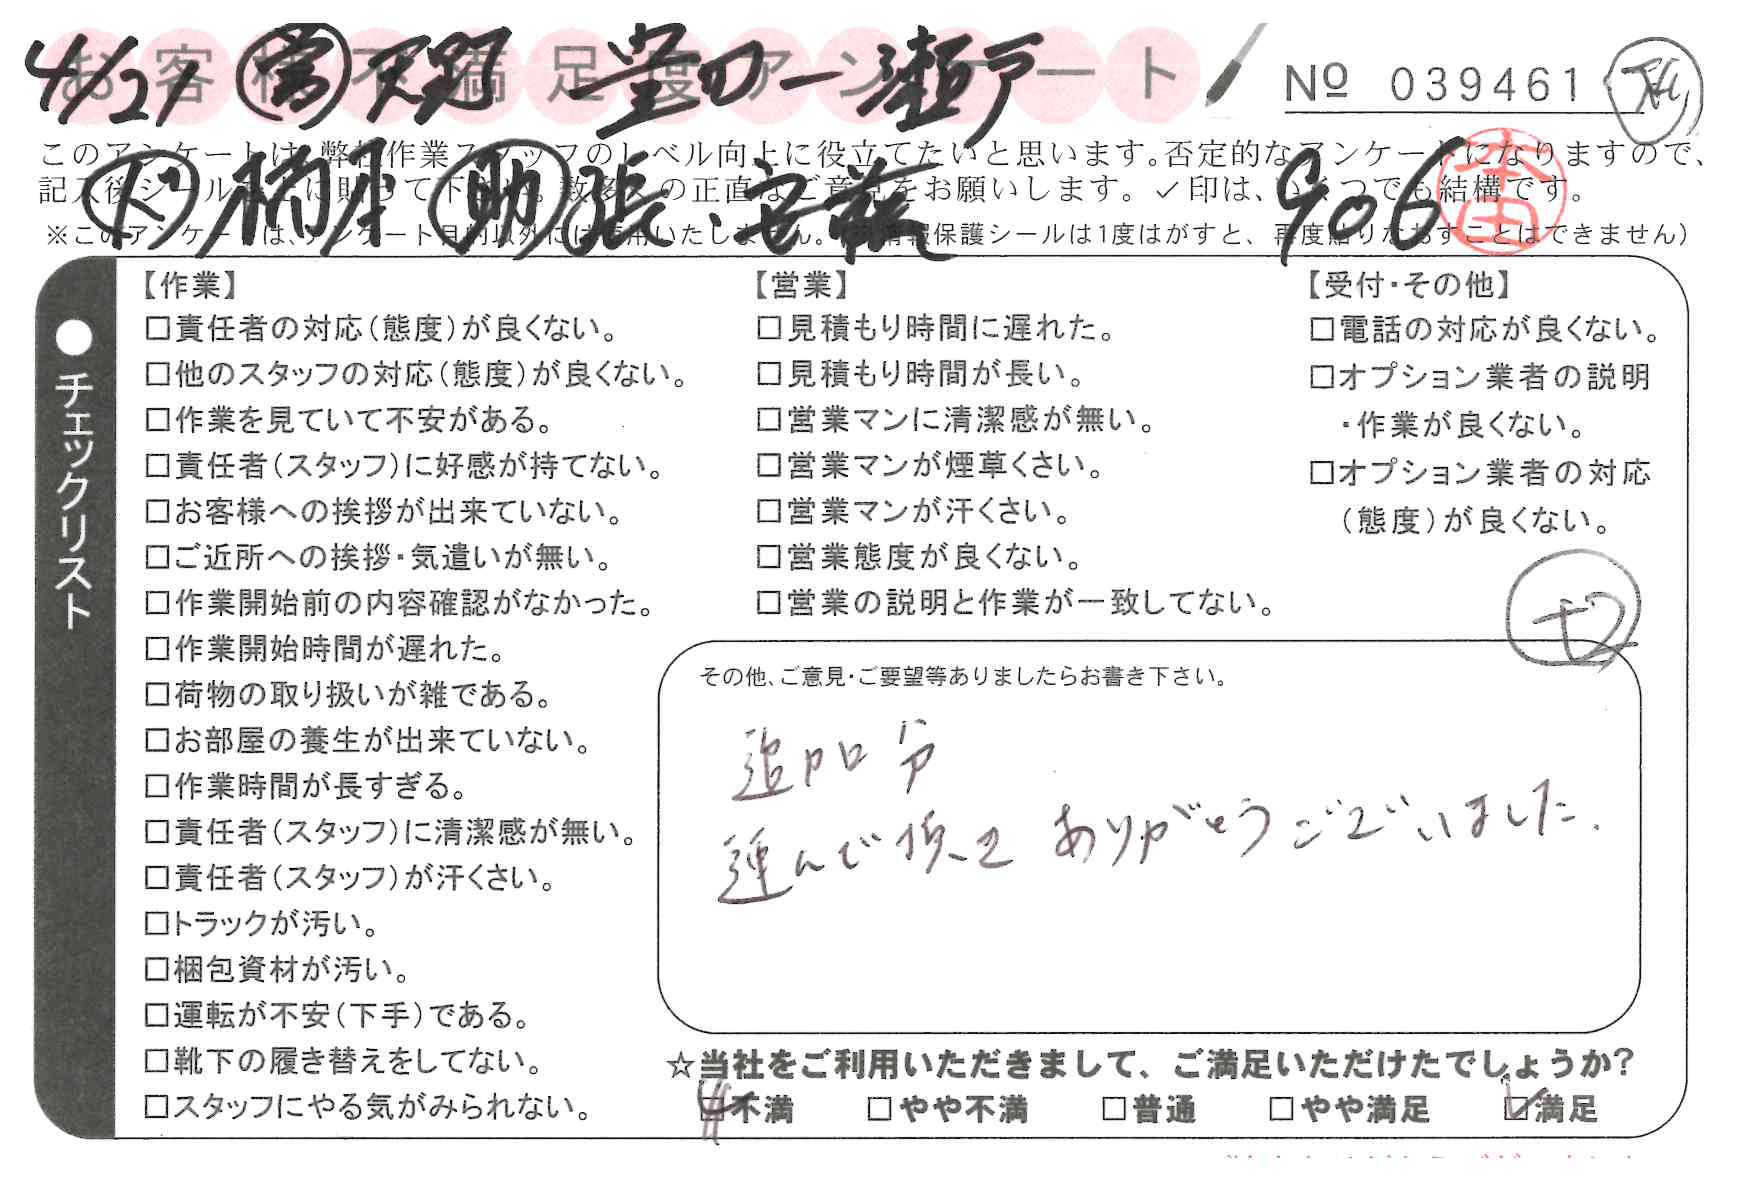 お客様不満足度アンケート
4/21 営 天野 豊田ー瀬戸
№ 039461
このアンケートは、弊社作業スタッフのレベル向上に役立てたいと思います。否定的なアンケートになりますので、
記入後シールを上に貼って下さい。数多くの正直なご意見をお願いします。✓印は、いくつでも結構です。
※このアンケートは、アンケート目的以外には使用いたしません。(個人情報保護シールは1度はがすと、再度貼りなおすことはできません)
柿本 助 張、安藤 906
本田
●チェックリスト
【作業】
□責任者の対応(態度)が良くない。
□他のスタッフの対応(態度)が良くない。
□作業を見ていて不安がある。
□責任者(スタッフ)に好感が持てない。
□お客様への挨拶が出来ていない。
□ご近所への挨拶・気遣いが無い。
□作業開始前の内容確認がなかった。
□作業開始時間が遅れた。
□荷物の取り扱いが雑である。
□お部屋の養生が出来ていない。
□作業時間が長すぎる。
□責任者(スタッフ)に清潔感が無い。
□責任者(スタッフ)が汗くさい。
□トラックが汚い。
□梱包資材が汚い。
□運転が不安(下手)である。
□靴下の履き替えをしてない。
□スタッフにやる気がみられない。
【営業】
□見積もり時間に遅れた。
□見積もり時間が長い。
□営業マンに清潔感が無い。
□営業マンが煙草くさい。
□営業マンが汗くさい。
□営業態度が良くない。
□営業の説明と作業が一致してない。
【受付・その他】
□電話の対応が良くない。
□オプション業者の説明
・作業が良くない。
□オプション業者の対応
(態度)が良くない。
+2
その他、ご意見・ご要望等ありましたらお書き下さい。
追加分
運んで頂き ありがとうございました.
☆当社をご利用いただきまして、ご満足いただけたでしょうか?
□不満 □やや不満 □普通 □やや満足 ☑満足